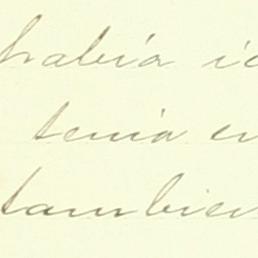 habia
tenia en
tambien